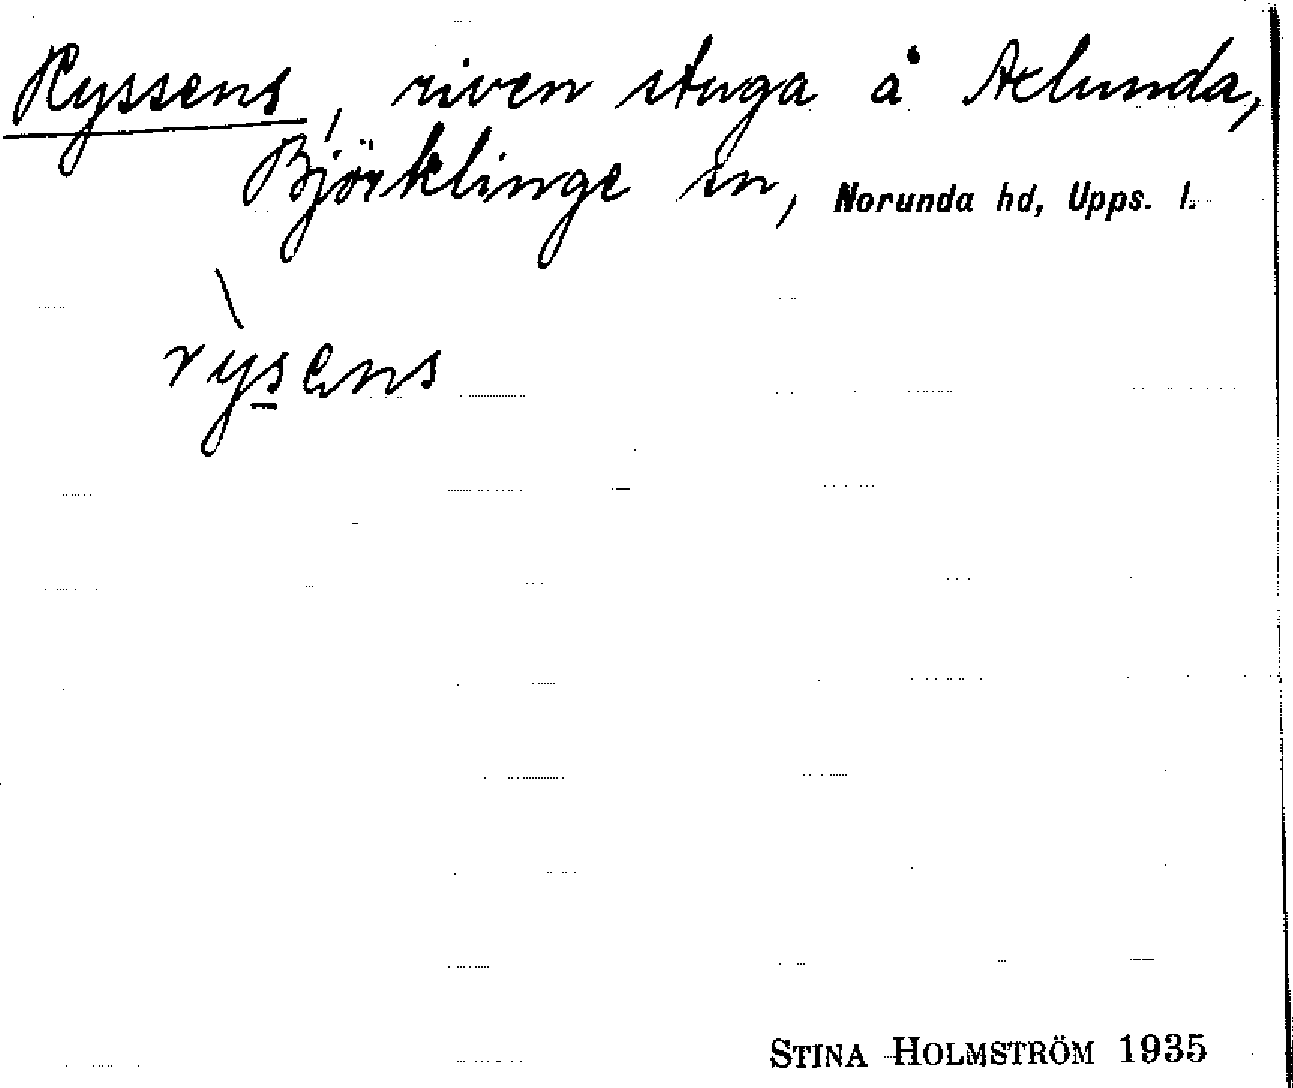 Ryssens, riven stuga å Aelunda,
Björklinge sn, Norunda hd, Upps. l.
rỳsens
STINA HOLMSTRÖM 1935